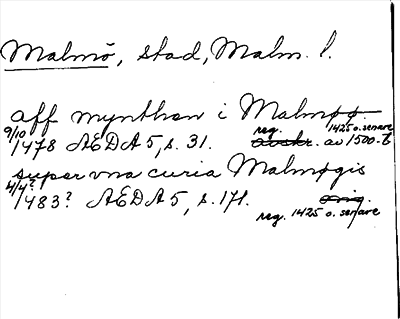 Malmö, stad, Malm. l.
aff mynthen i Malmøø.
9/10 1478 AEDA 5, s. 31. reg. 1425 o. senare
avskr. av 1500-t
super vna curia Malmøgis
4/4? 1483? AEDA 5, s. 171. orig.
reg. 1425 o. senare